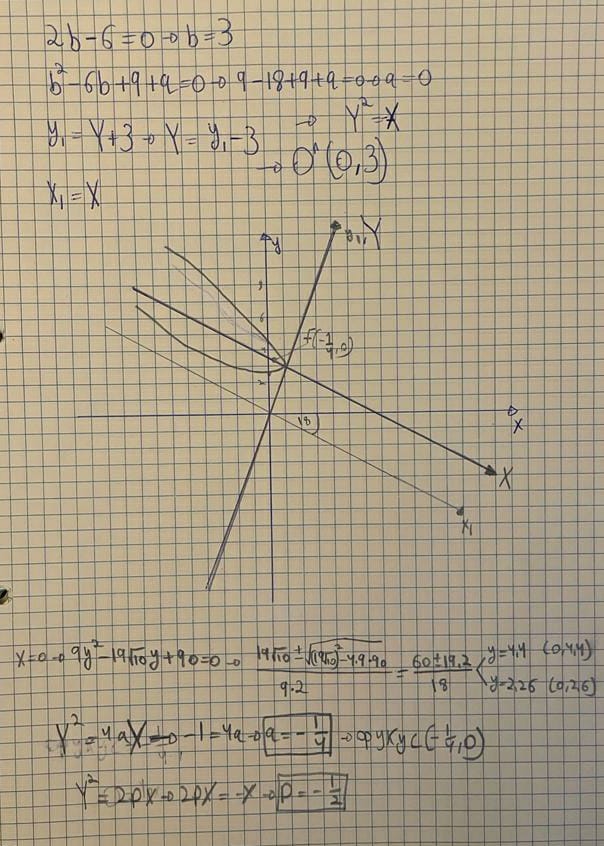 2b-6=0→b=3
b²-6b+9+a=0→9-18+9+a=0→a=0
y₁=Y+3→Y=y₁-3 → Y²=-X
→O''(0,3)
x₁=X
y
y₁,Y
6
F(-1/4,0)
2
18
x
X
x₁
x=0→9y²-19√10y+90=0→ (19√10±√((19√10)²-4·9·90))/(9·2) = (60±19,2)/18 y=4,4 (0,4,4)
y=2,26 (0,2,6)
Y²=4aX→-1=4a→a=-1/4→фукус(-1/4,0)
Y²=2pX→2pX=-X→p=-1/2